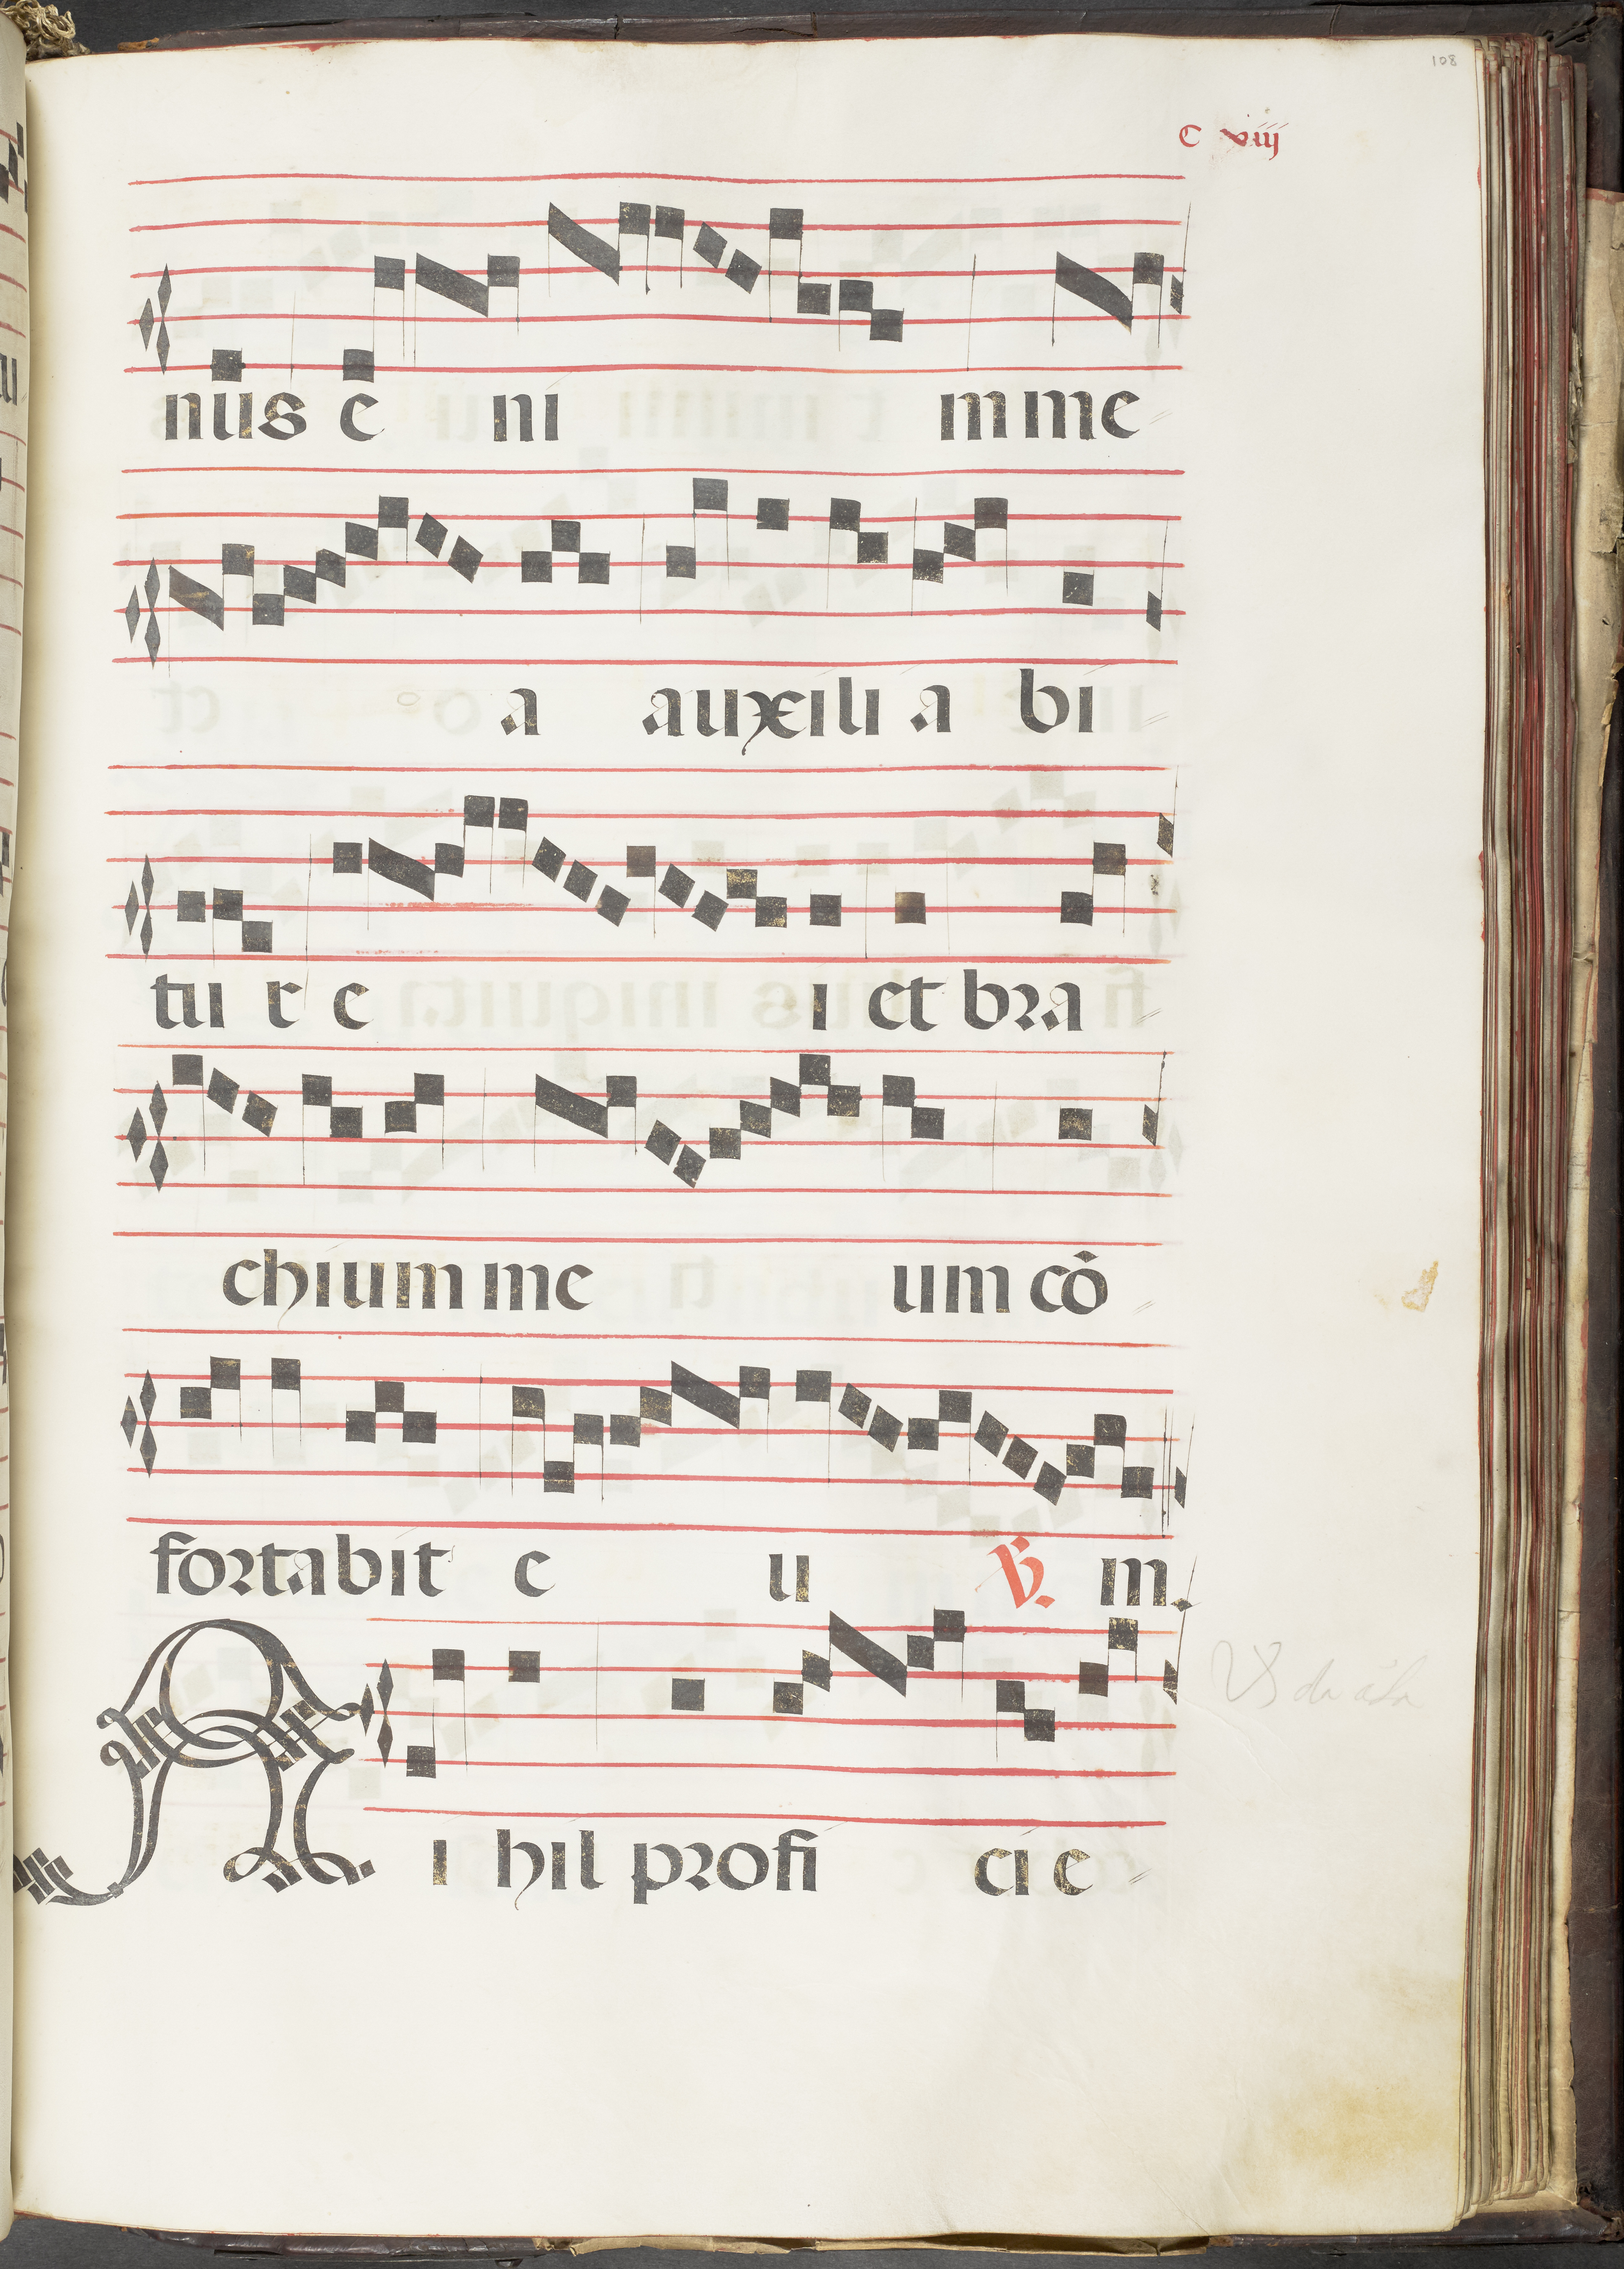 108
C xviij
nus e ni m me
a auxili a bi
tu r e i et bra
chium me um cō
fortabit e u ℣. m.
N i hil profi ci e